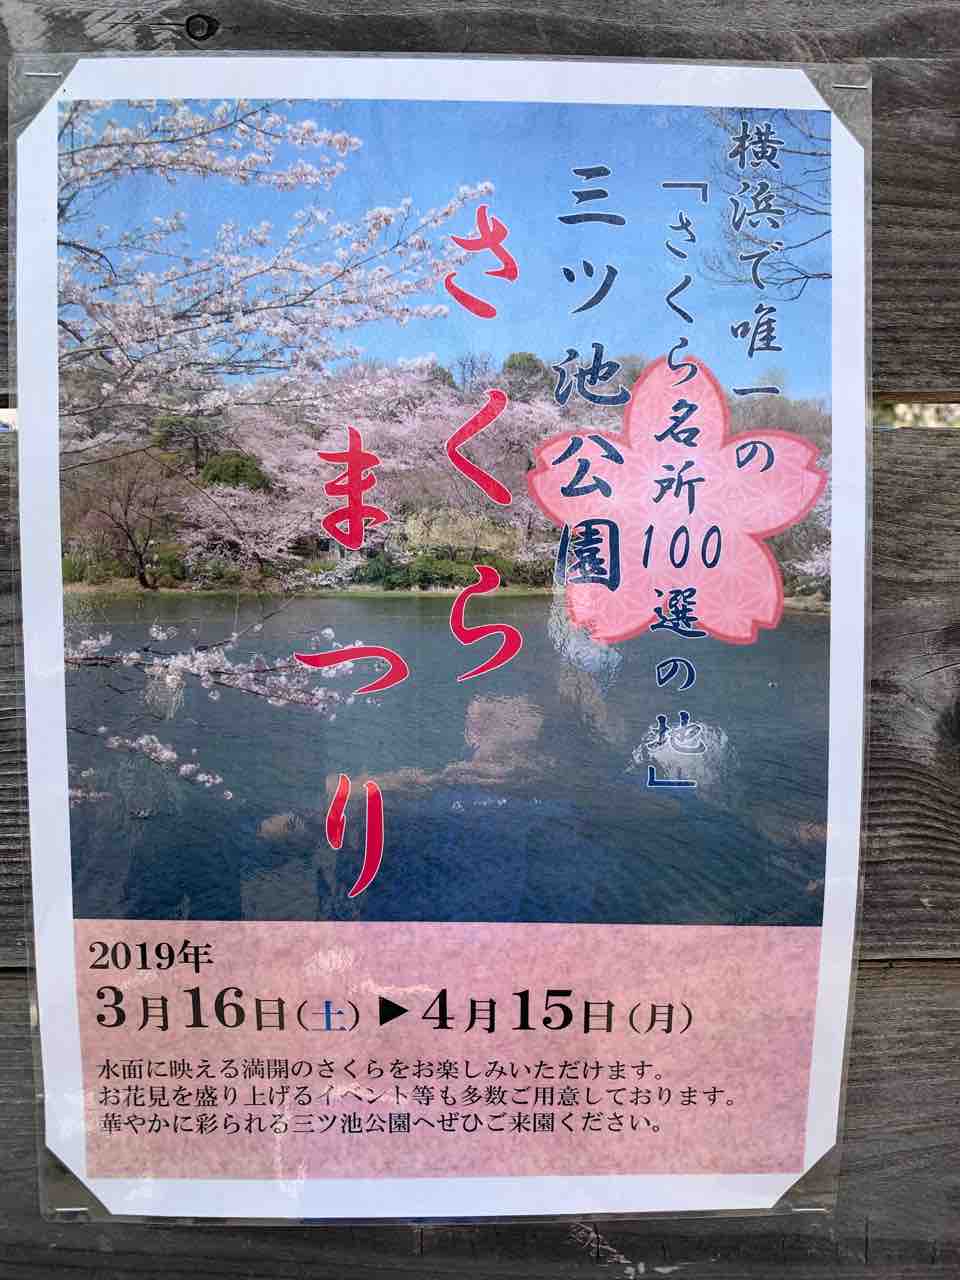 横浜で唯一の
「さくら名所100選の地」
三ツ池公園
さくら
まつり
2019年
3月16日(土)▶4月15日(月)
水面に映える満開のさくらをお楽しみいただけます。
お花見を盛り上げるイベント等も多数ご用意しております。
華やかに彩られる三ツ池公園へぜひご来園ください。